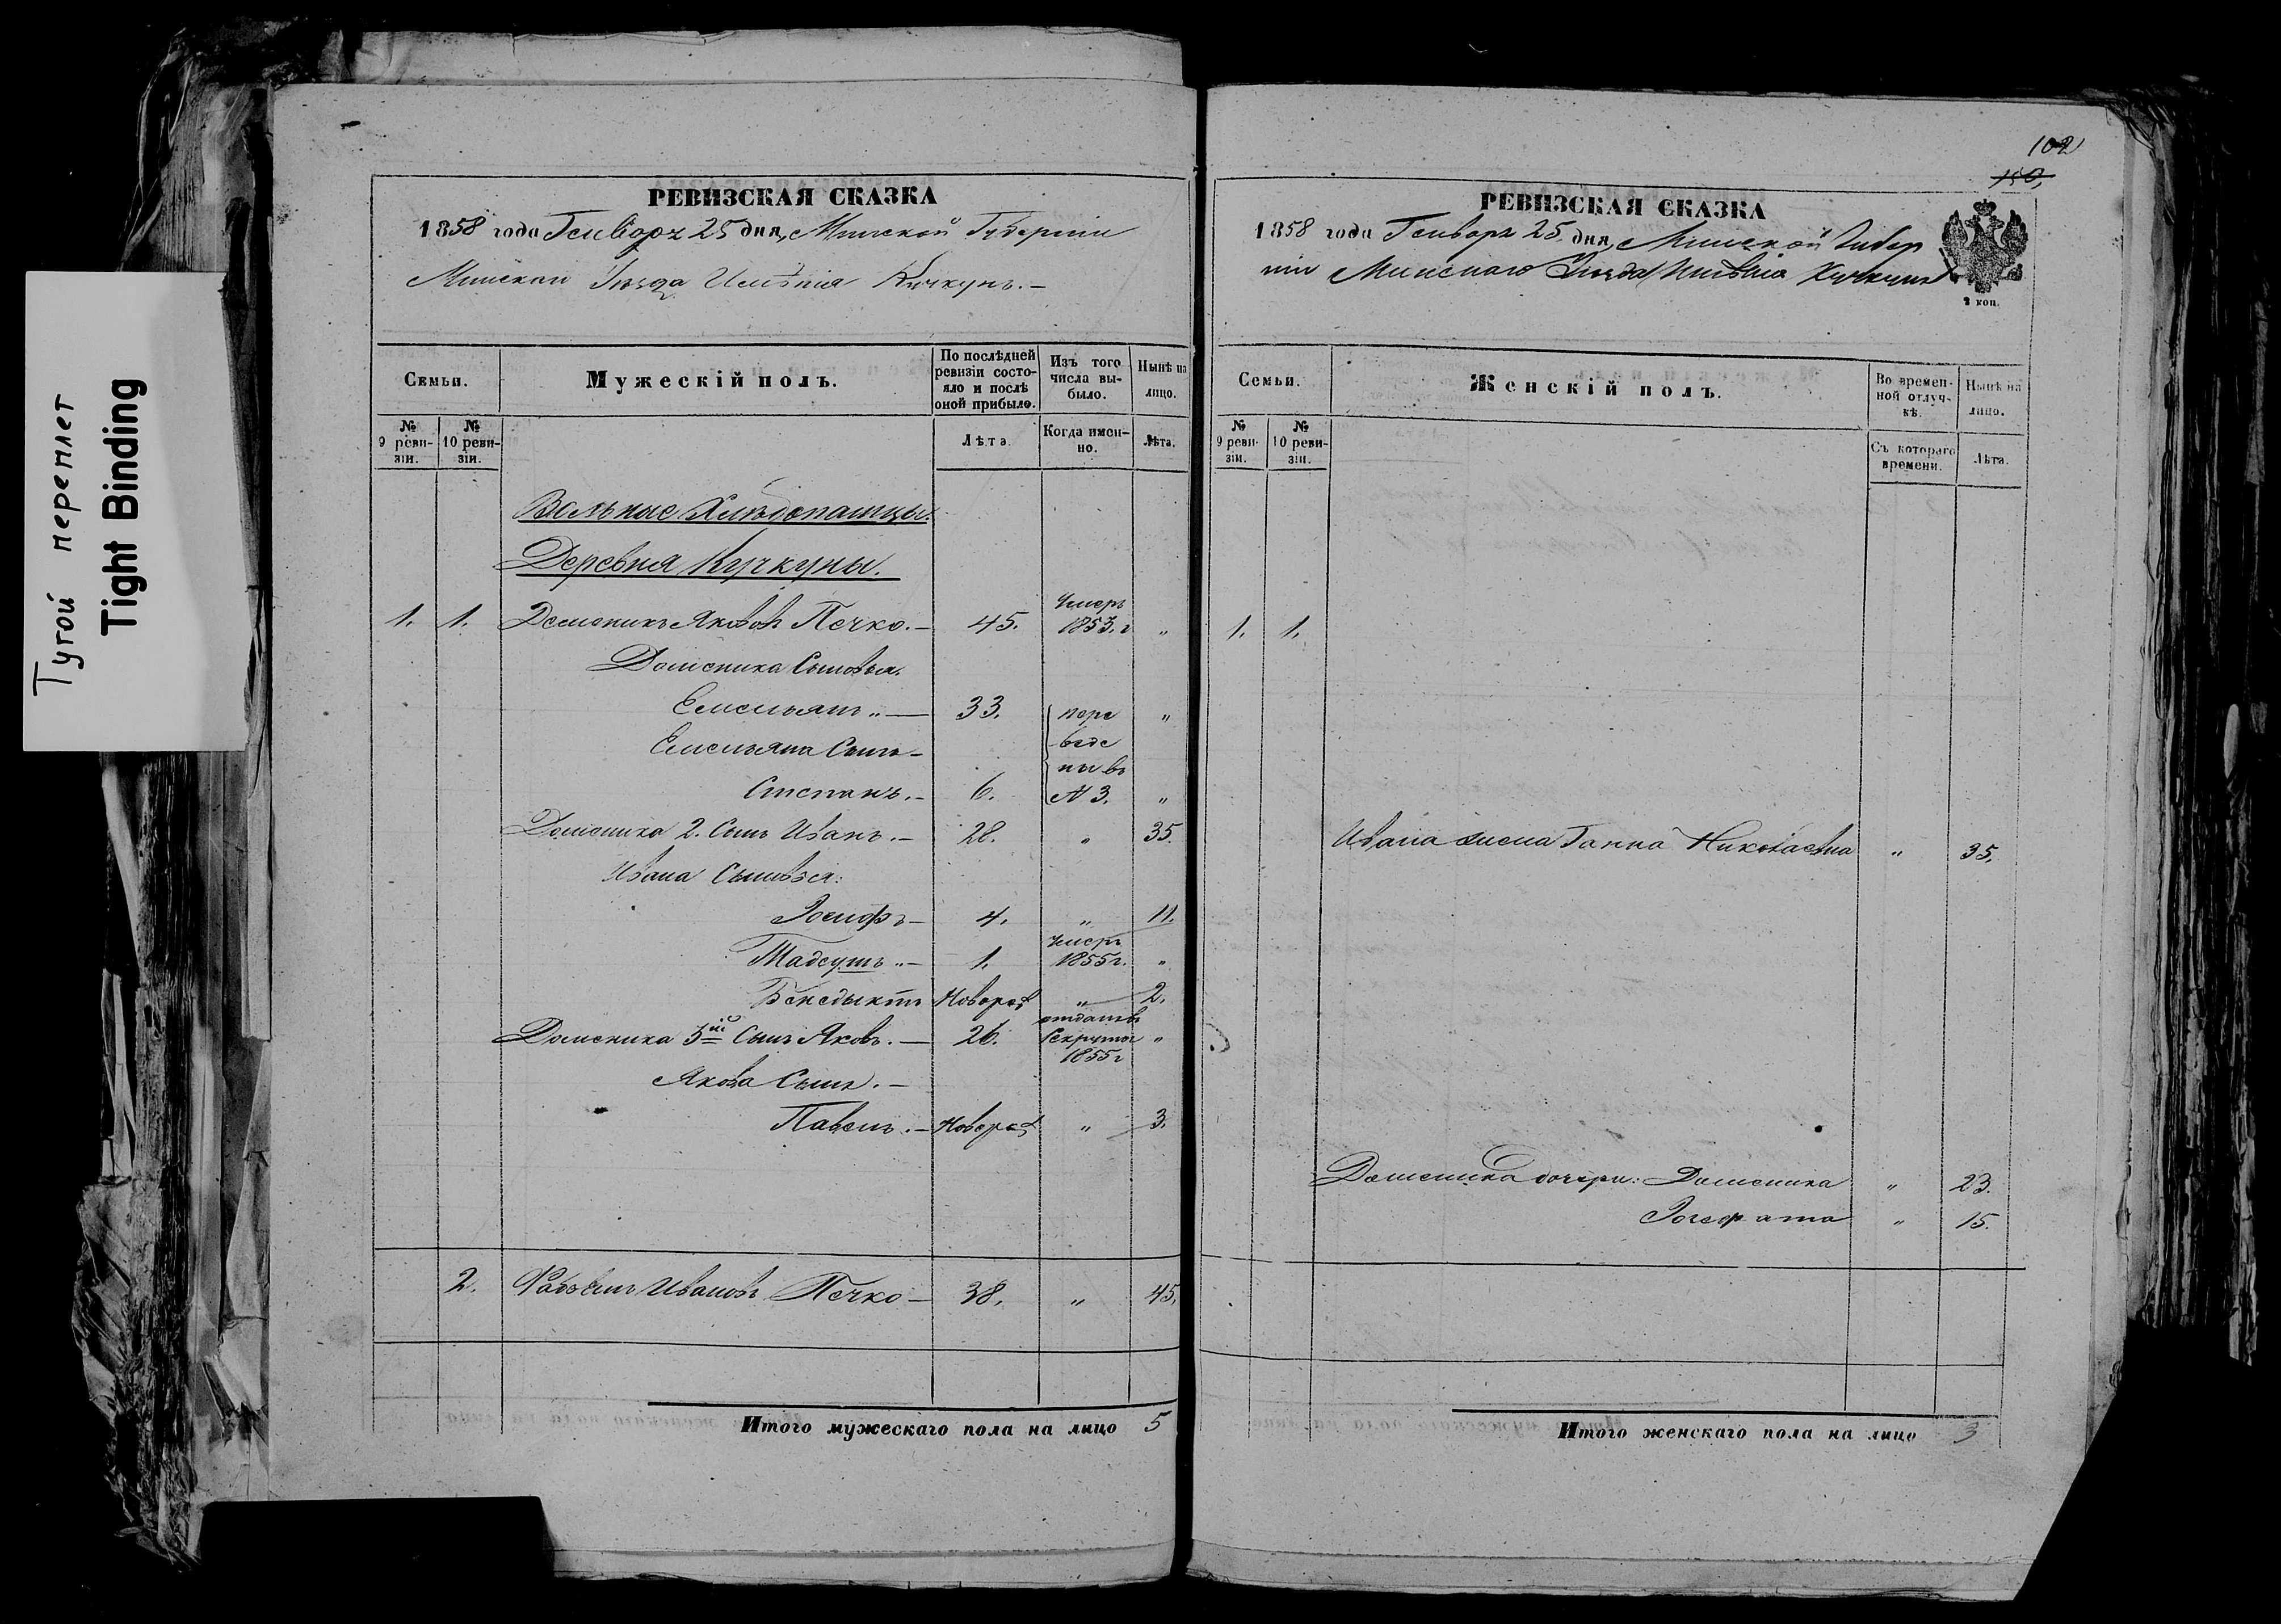 Тугой переплет
Tight Binding
РЕВИЗСКАЯ СКАЗКА
1858 года Генваря 25 дня, Минской Губерніи
Минскаго Уѣзда Имѣнія Кучкунъ.—
Семьи.
Мужескій полъ.
По послѣдней ревизіи состояло и послѣ оной прибыло.
Изъ того числа выбыло.
Нынѣ на лицо.
№ 9 ревизіи.
№ 10 ревизіи.
Лѣта.
Когда именно.
Лѣта.
Вольные Хлѣбопашцы.
Деревня Кучкуны.
1. 1. Доменикъ Яковъ Печко.— 45. Умеръ 1853. г "
Доменика Сыновья.
Емельянъ „— 33. пере "
Емельяна Сынъ— веде
ны въ
Степанъ.— 6. № 3. "
Доменика 2. Сынъ Иванъ.— 28. " 35.
Ивана Сыновья:
Іосифъ— 4. " 11.
Тадеушъ „— 1. Умеръ 1855 г. "
Бенедыктъ Новорож " 2.
Доменика 3ій Сынъ Яковъ.— 26. отданъ въ Рекруты 1855 г "
Якова Сынъ.—
Павелъ.— Новорож " 3.
2. Ивановъ Печко— 38. " 45.
Итого мужескаго пола на лицо 5
102
150,
РЕВИЗСКАЯ СКАЗКА
1858 года Генваря 25 дня, Минской Губер
ніи Минскаго Уѣзда Имѣнія Кучкунъ
2 коп.
Семьи.
Женскій полъ.
Во временной отлучкѣ.
Нынѣ на лицо.
№ 9 ревизіи.
№ 10 ревизіи.
Съ котораго времени.
Лѣта.
1. 1.
Ивана жена Ганна Николаевна " 35.
Доменика дочери: Доменика " 23.
Іозефата " 15.
Итого женскаго пола на лицо 3